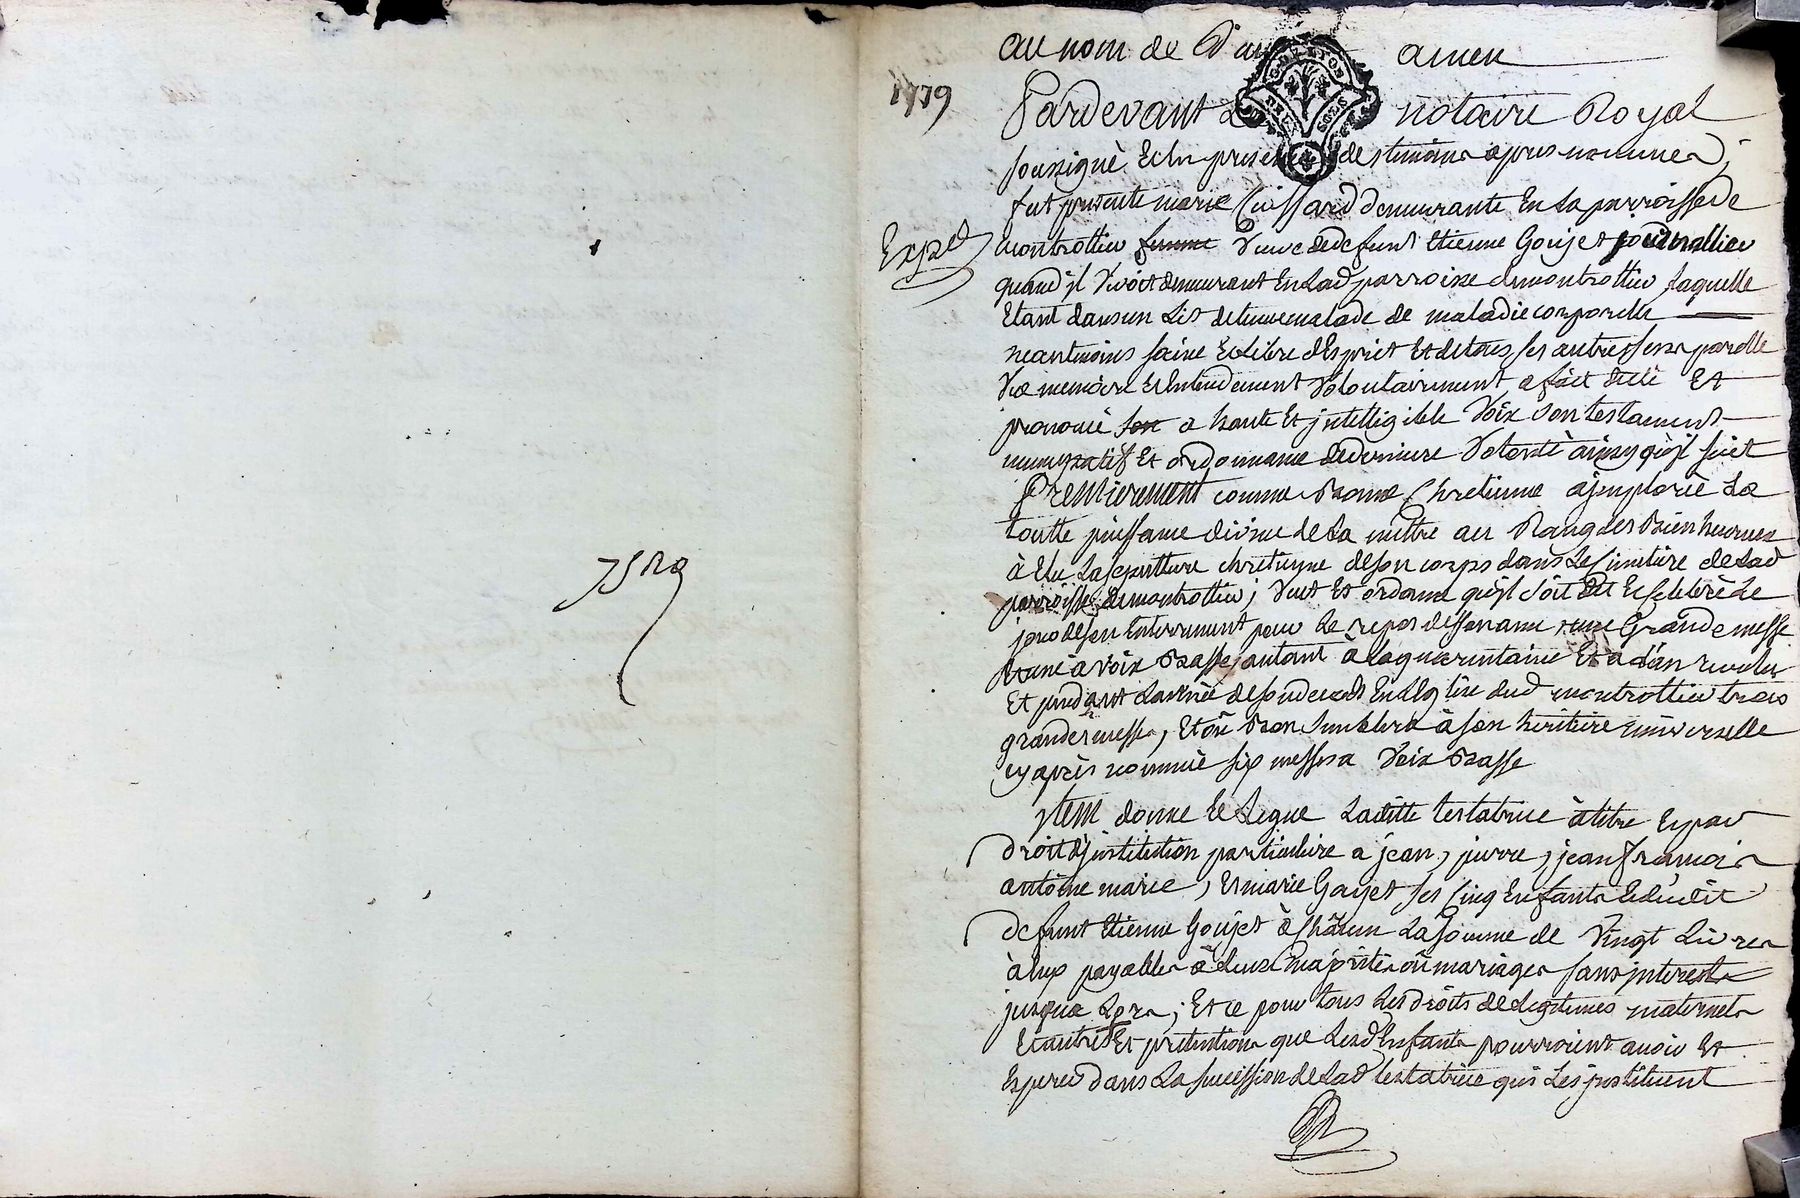 au nom de Dieu amen
1779
Pardevant Le notaire Royal
soussigné Et En presence des temoins apres nommes ;
fut presente marie Cuissard demeurante En La parroisse de
Exp.d
montrottier femme Veuve de defunt Etienne Goujet journallier
quand jl Vivoit demeurant En Lad parroisse de montrottier Laquelle
Etant dans un Lit detenue malade de maladie corporelle
neantmoins saine Et Libre d'Esprit Et de tous ses autres sens parolle
Vüe memoire Et Entendement Volontairement a fait dicté Et
prononcé son a haute Et jntelligible Voix son testament
nuncupatif Et ordonnance de derniere Volonté ainsy qu'jl suit
Premierement comme Bonne Chretienne a jmploré La
toutte puissance divine de La mettre au Rang des Bienheureux
à Elu La sepulture chretienne de son corps dans Le Cimetiere de Lad
parroisse de montrottier ; Veut Et ordonne qu'jl soit dit Et Celebré Le
jour de son Enterrement pour Le repos de son ame une Grande messe
Et une à voix Basse, autant à La quarentaine Et à d'an revolu
Et pendant L'année de son deced En L'Eglise dud montrottier trois
grandes messes, Et où Bon Semblera à son heritiere universelle
cy après nommée six messes a Voix Basse
jtem donne Et Legue Laditte testatrice à titre Et par
droit d'jnstitution particuliere a jean, pierre, jean francois
antoine marie, Et marie Goujet ses Cinq Enfants Et dudit
defunt Etienne Goujet à Châcun La somme de Vingt Livres
à Eux payables à Leurs majorités où mariages sans jnterests
jusqua Lors ; Et ce pour tous Les droits de Legitimes maternels
Et autres Et pretentions que Lesd Enfants pourroient avoir Et
Esperer dans La succession de Lad testatrice qui Les jnstituent